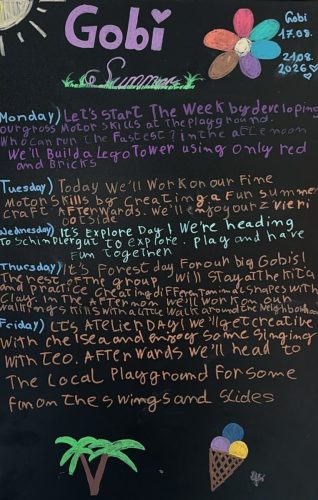 Gobi
Summer
Gobi
17.08.
21.08.
2026
Monday) Let's start The Week by developing
our gross Motor skills at the playground.
Who can run the fastest? in the afternoon
We'll Build a Lego Tower using only red
and Bricks
Tuesday) Today We'll Work on our Fine
Motor skills by Creating a Fun summer
craft Afterwards. We'll enjoy our zvieri
outside
Wednesday) It's Explore Day! We're heading
to Schindlergut to explore. Play and have
Fun together
Thursday) It's Forest day For our big Gobis!
The rest of the group will stay at the Kita
and practice creating different animal shapes with
Clay. In the Afternoon We'll work on our
walking skills with a little walk around the Neighborhood
Friday) It's ATelier DAY! We'll get creative
With chelsea and enjoy some singing
with Teo. AFTerwards We'll head to
The Local Playground for some
fun on the swings and slides